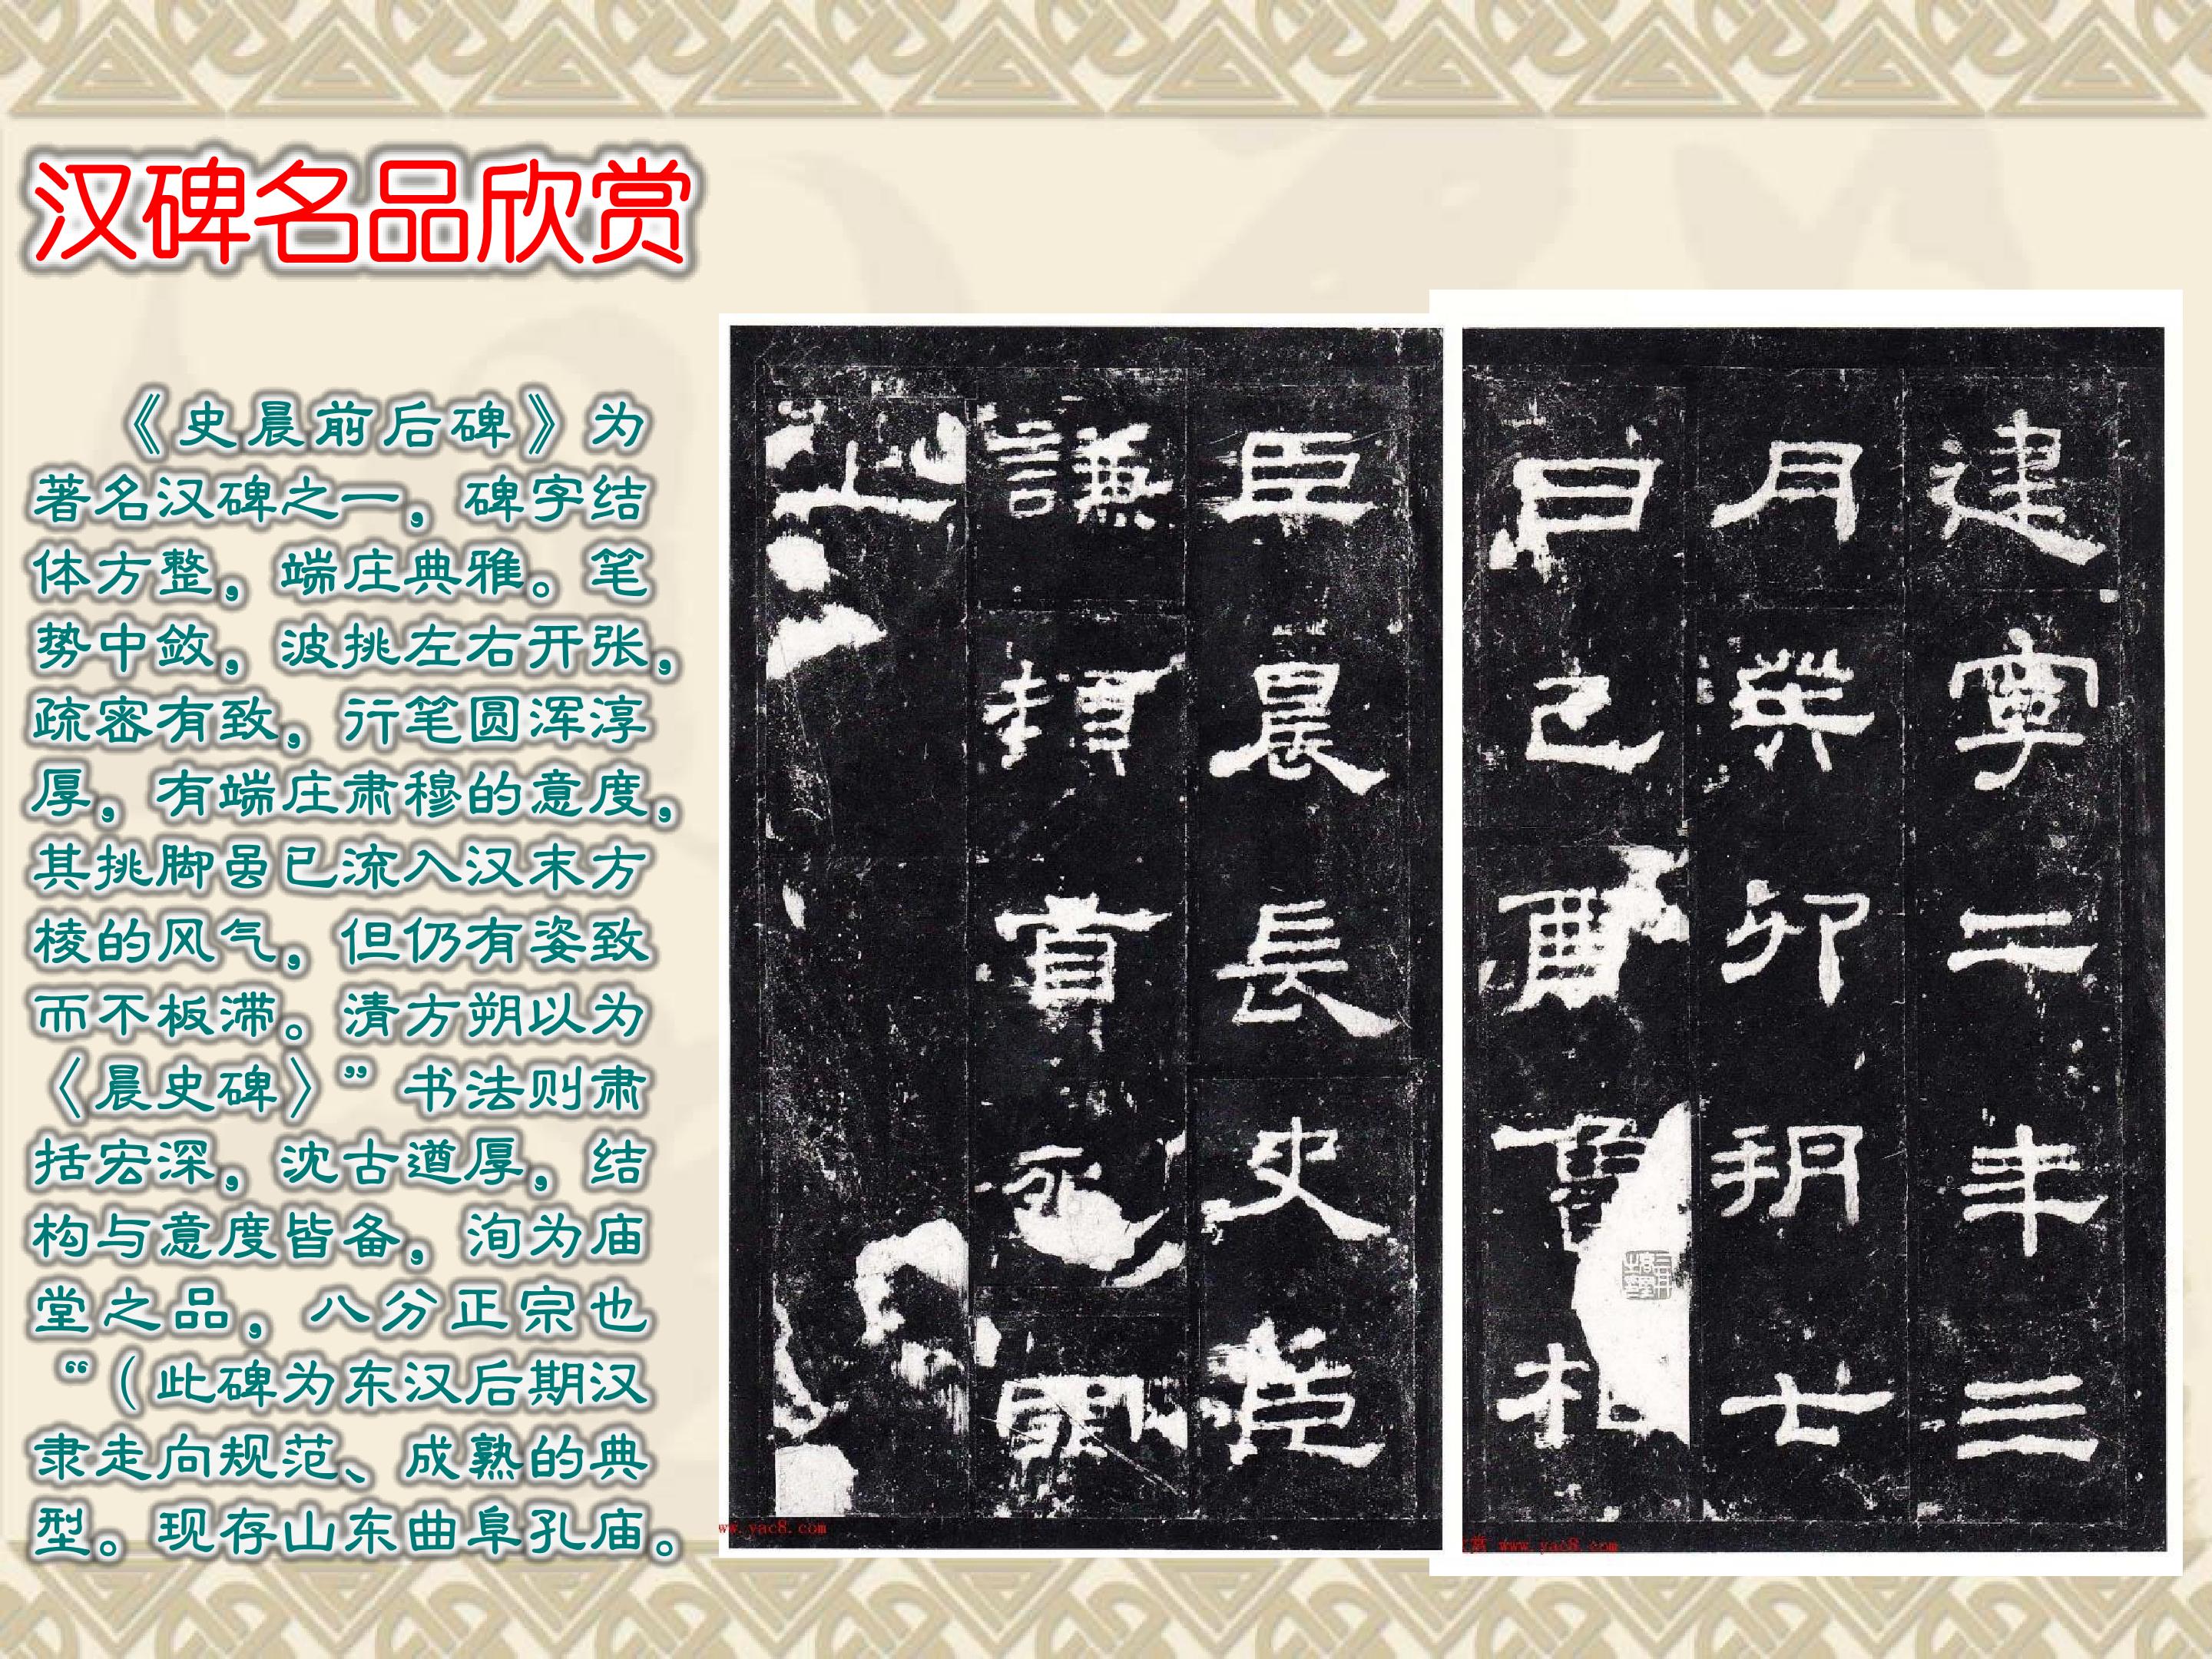 汉碑名品欣赏
《史晨前后碑》为
著名汉碑之一，碑字结
体方整，端庄典雅。笔
势中敛，波挑左右开张，
疏密有致，行笔圆浑淳
厚，有端庄肃穆的意度，
其挑脚虽已流入汉末方
棱的风气，但仍有姿致
而不板滞。清方朔以为
〈晨史碑〉”书法则肃
括宏深，沈古遒厚，结
构与意度皆备，洵为庙
堂之品，八分正宗也
“（此碑为东汉后期汉
隶走向规范、成熟的典
型。现存山东曲阜孔庙。
建寧二年三
月癸卯朔七
日己酉魯相
臣晨長史臣
謙頓首死罪
上
ww.yac8.com
赏 www.yac8.com